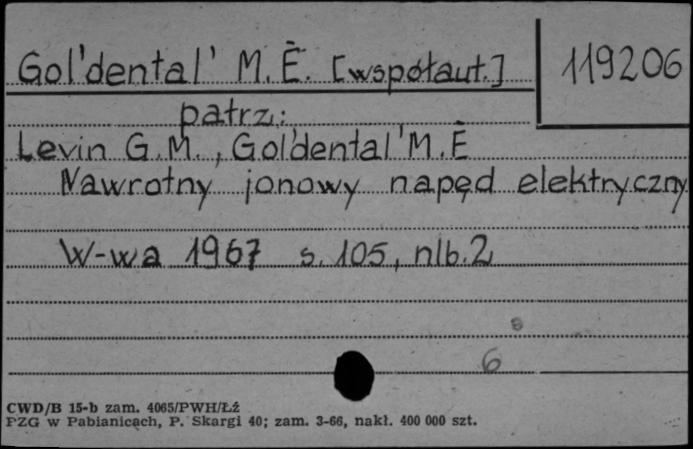 Gol'dental' M. Ė. [współaut.]
119206
patrz:
Levin G.M., Gol'dental' M.Ė
Nawrotny jonowy napęd elektryczny
W-wa 1967 s. 105, nlb. 2
6
CWD/B 15-b zam. 4065/PWH/Łź
PZG w Pabianicach, P. Skargi 40; zam. 3-66, nakł. 400 000 szt.